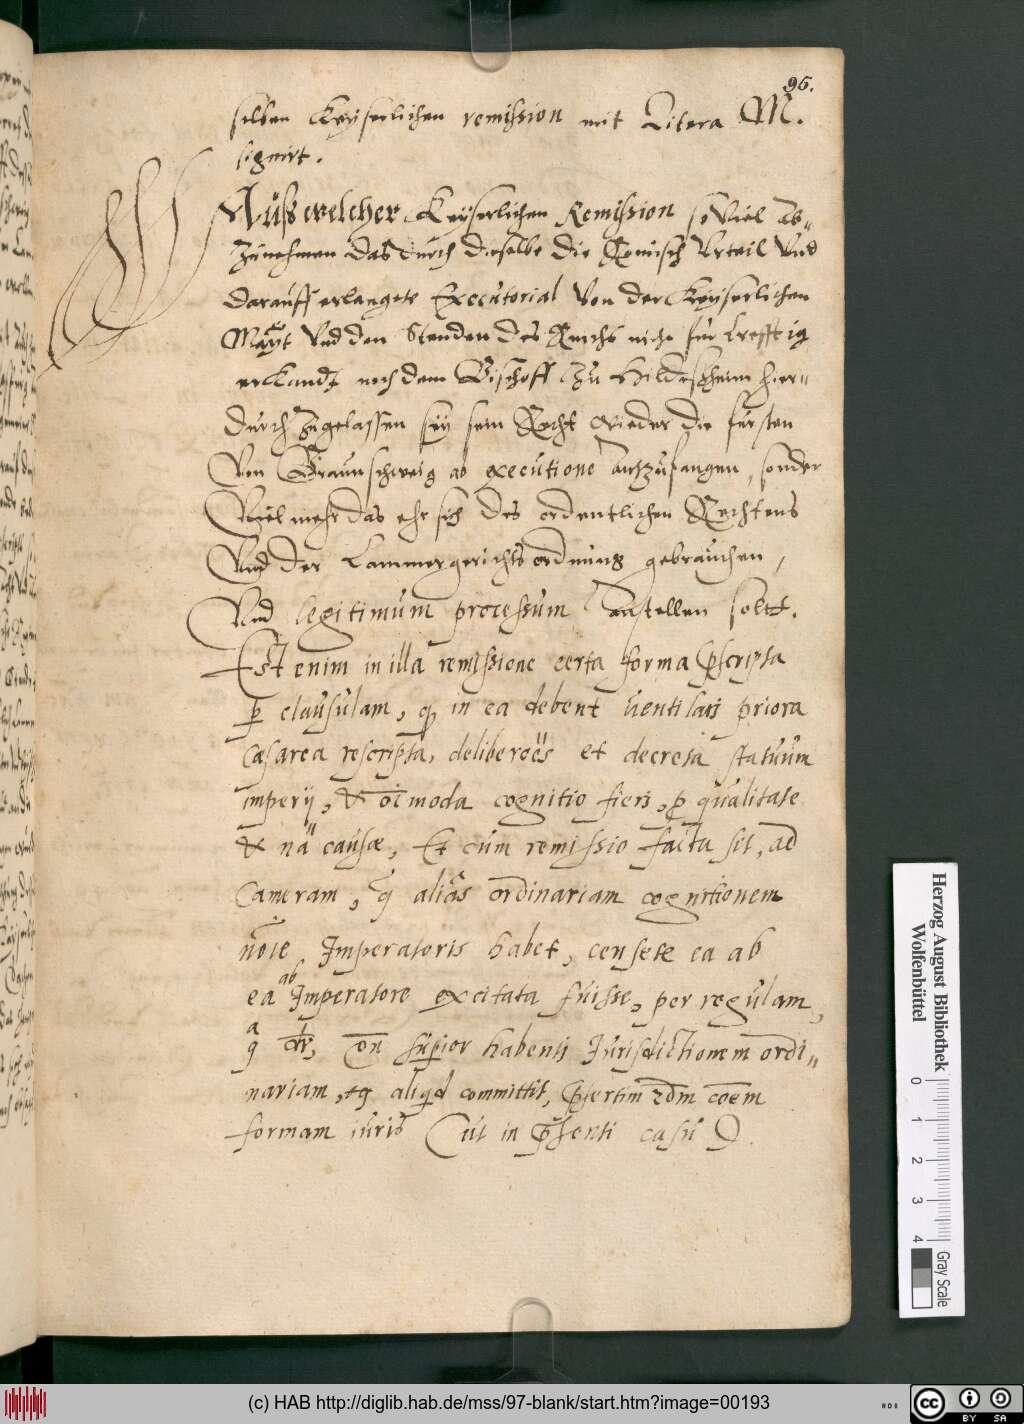 96.
selben Keyserlichen remission mit Litera M.
signirt.
Auß welcher Keyserlichen Remission so viel ab„
zunehmen das durch dieselbe die Romisch Urteil Vnd
darauff erlangete Executorial Von der Keyserlichen
Mayt Vnd den Stenden des Reichs nicht fur krefftig
erkandt noch dem Bischoff zu Hildeßheim hier„
durch zugelassen sey sein Recht wieder die fursten
Von Braunschweig ab executione anzufangen, sonder
Viel mehr das ehr sich des ordentlichen Rechtens
Vnd der Cammergerichts ordnung gebrauchen,
Vnd legitimum processum anstellen soltt.
Est enim in illa remissione certa forma p̄scripta
p clausulam, q in ea debent uentilari priora
Cæsarea rescripta, deliberōēs et decreta statuum
imperij, & oīmoda cognitio fieri, p qualitate
& nā causæ, Et cum remissio facta sit, ad
Cameram, q̄ aliâs ordinariam cognitionem
nōīe Imperatoris habet, censetr ea ab
ea ab Imperatore excitata fuisse, per regulam,
q dr, Cōn supior habenti Jurisdictionem ordi„
nariam, aliqd committit, p̄sertim scdm cōem
formam iuris (ut in p̄senti casu)
Herzog August Bibliothek
Wolfenbüttel
0
1
2
3
4
Gray Scale
(c) HAB http://diglib.hab.de/mss/97-blank/start.htm?image=00193
cc
BY SA